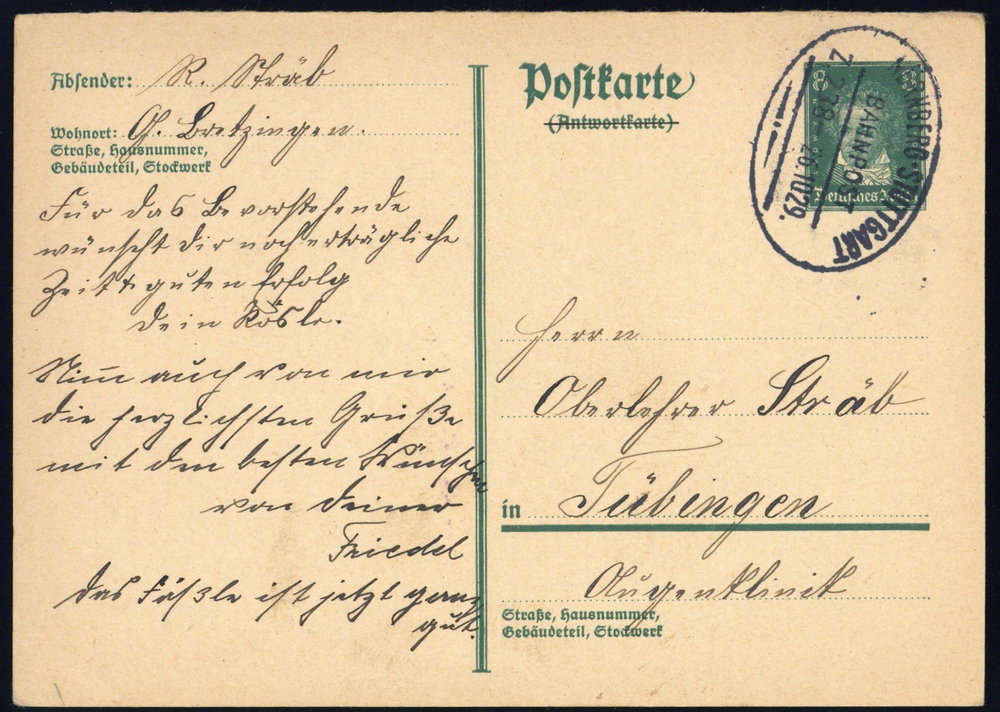 Absender: R. Sträb
Wohnort: G. Bretzingen.
Straße, Hausnummer,
Gebäudeteil, Stockwerk
Für das Bevorstehende
wünscht Dir noch erträgliche
Zeit & guten Erfolg
Dein Rösle.
Nim auch von mir
die herzlichsten Grüße
mit den besten Wünschen
von Deiner
Friedel
Das Füßle ist jetzt ganz
gut.
Postkarte
(Antwortkarte)
NÜRNBERG-STUTTGART
BAHNPOST
Z
26.10 29.
8
Deutsches Reich
Herrn
Oberlehrer Sträb
in Tübingen
Augenklinik
Straße, Hausnummer,
Gebäudeteil, Stockwerk